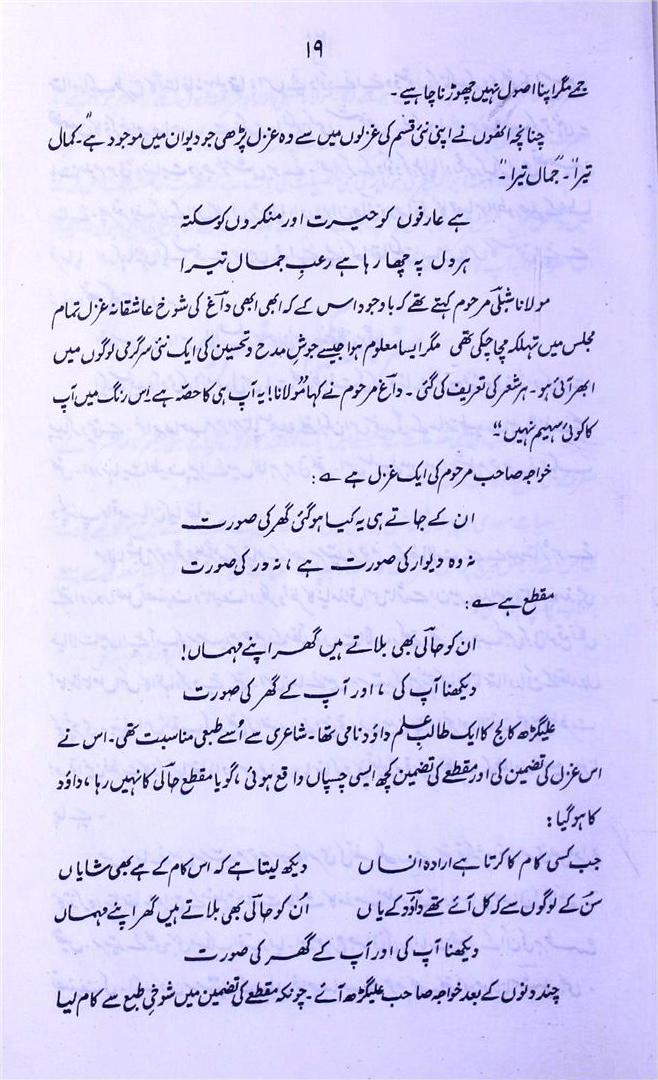 ۱۹
جمے مگر اپنا اصول نہیں چھوڑنا چاہیے۔
چنانچہ انھوں نے اپنی نئی قسم کی غزلوں میں سے وہ غزل پڑھی جو دیوان میں موجود ہے "کمال
تیرا"۔ "جمال تیرا"۔
ہے عارفوں کو حیرت اور منکروں کو سکتہ
ہر دل پہ چھا رہا ہے رعبِ جمال تیرا
مولانا شبلی مرحوم کہتے تھے کہ باوجود اس کے کہ ابھی ابھی داغ کی شوخ عاشقانہ غزل تمام
مجلس میں تہلکہ مچا چکی تھی مگر ایسا معلوم ہوا جیسے جوشِ مدح و تحسین کی ایک نئی سرگرمی لوگوں میں
ابھر آئی ہو۔ ہر شعر کی تعریف کی گئی۔ داغ مرحوم نے کہا "مولانا! یہ آپ ہی کا حصہ ہے اس رنگ میں آپ
کا کوئی سہیم نہیں"
خواجہ صاحب مرحوم کی ایک غزل ہے ؎ :
ان کے جاتے ہی یہ کیا ہو گئی گھر کی صورت
نہ وہ دیوار کی صورت ہے، نہ در کی صورت
مقطع ہے ؎ :
ان کو حالی بھی بلاتے ہیں گھر اپنے مہماں!
دیکھنا آپ کی، اور آپ کے گھر کی صورت
علیگڑھ کالج کا ایک طالب علم داؤد نامی تھا۔ شاعری سے اُسے طبعی مناسبت تھی۔ اس نے
اس غزل کی تضمین کی اور مقطعے کی تضمین کچھ ایسی چسپاں واقع ہوئی، گویا مقطع حالی کا نہیں رہا، داؤد
کا ہو گیا :
جب کسی کام کا کرتا ہے ارادہ انساں دیکھ لیتا ہے کہ اس کام کے ہے بھی شایاں
سن کے لوگوں سے کہ کل آئے تھے داؤد کے یاں اُن کو حالی بھی بلاتے ہیں گھر اپنے مہماں
دیکھنا آپ کی اور آپ کے گھر کی صورت
چند دنوں کے بعد خواجہ صاحب علیگڑھ آئے۔ چونکہ مقطعے کی تضمین میں شوخیِ طبع سے کام لیا